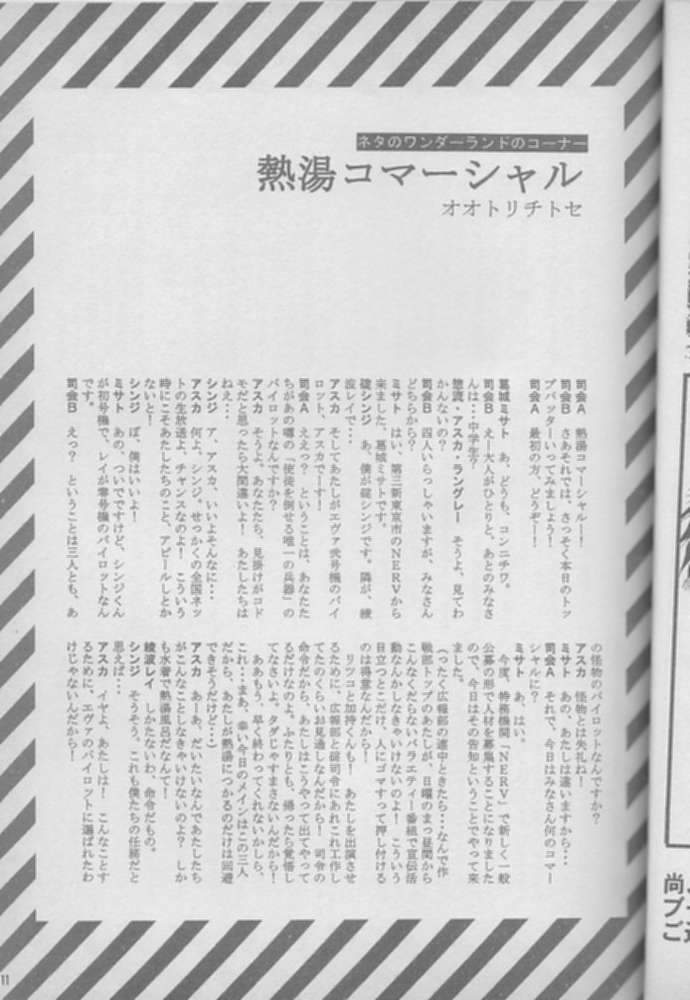 ネタのワンダーランドのコーナー
熱湯コマーシャル
オオトリチトセ
司会A　熱湯コマーシャルー！
司会B　さあそれでは、さっそく本日のトッ
プバッターいってみましょう！
司会A　最初の方、どうぞー！
葛城ミサト　あ、どうも、コンニチワ。
司会B　えー大人がひとりと、あとのみなさ
んは…中学生？
惣流・アスカ・ラングレー　そうよ、見てわ
かんないの？
司会B　四人いらっしゃいますが、みなさん
どちらから？
ミサト　はい、第三新東京市のNERVから
来ました、葛城ミサトです。
碇シンジ　あ、僕が碇シンジです。隣が、綾
波レイで…
アスカ　そしてあたしがエヴァ弐号機のパイ
ロット、アスカでーす！
司会A　ええっ？　ということは、あなたた
ちがあの噂の「使徒を倒せる唯一の兵器」の
パイロットなんですか？
アスカ　そうよ。あなたたち、見掛けがコド
モだと思ったら大間違いよ！　あたしたちは
ねえ…
シンジ　ア、アスカ、いいよそんなに…
アスカ　何よ、シンジ。せっかくの全国ネッ
トの生放送よ、チャンスなのよ！　こういう
時にこそあたしたちのこと、アピールしとか
ないと！
シンジ　ぼ、僕はいいよ！
ミサト　あの、ついでですけど、シンジくん
が初号機で、レイが零号機のパイロットなん
です。
司会B　えっ？　ということは三人とも、あ
の怪物のパイロットなんですか？
アスカ　怪物とは失礼ね！
ミサト　あの、あたしは違いますから…
司会A　それで、今日はみなさん何のコマー
シャルに？
ミサト　あ、はい。
　今度、特務機関「NERV」で新しく一般
公募の形で人材を募集することになりました
ので、今日はその告知ということでやって来
ました。
（ったく広報部の連中ときたら…なんで作
戦部トップのあたしが、日曜のまっ昼間から
こんなくだらないバラエティー番組で宣伝活
動なんかしなきゃいけないのよ！　こういう
目立つとこだけ、人にゴマすって押し付ける
のは得意なんだから！
　リツコと加持くんも！　あたしを出演させ
るために、広報部と碇司令にあれこれ工作し
てたのくらいお見通しなんだから！　司令の
命令だから、あたしはこうやって出てやって
るだけなのよ。ふたりとも、帰ったら覚悟し
てなさいよ、タダじゃすまさないんだから！
　ああもう、早く終わってくれないかしら、
これ…まあ、幸い今日のメインはこの三人
だから、あたしが熱湯につかるのだけは回避
できそうだけど…）
アスカ　あーあ、だいたいなんであたしたち
がこんなことしなきゃいけないのよ？　しか
も水着で熱湯風呂だなんて！
綾波レイ　しかたないわ、命令だもの。
シンジ　そうそう。これも僕たちの任務だと
思えば…
アスカ　イヤよ、あたしは！　こんなことす
るために、エヴァのパイロットに選ばれたわ
けじゃないんだから！
11
尚、
ブー